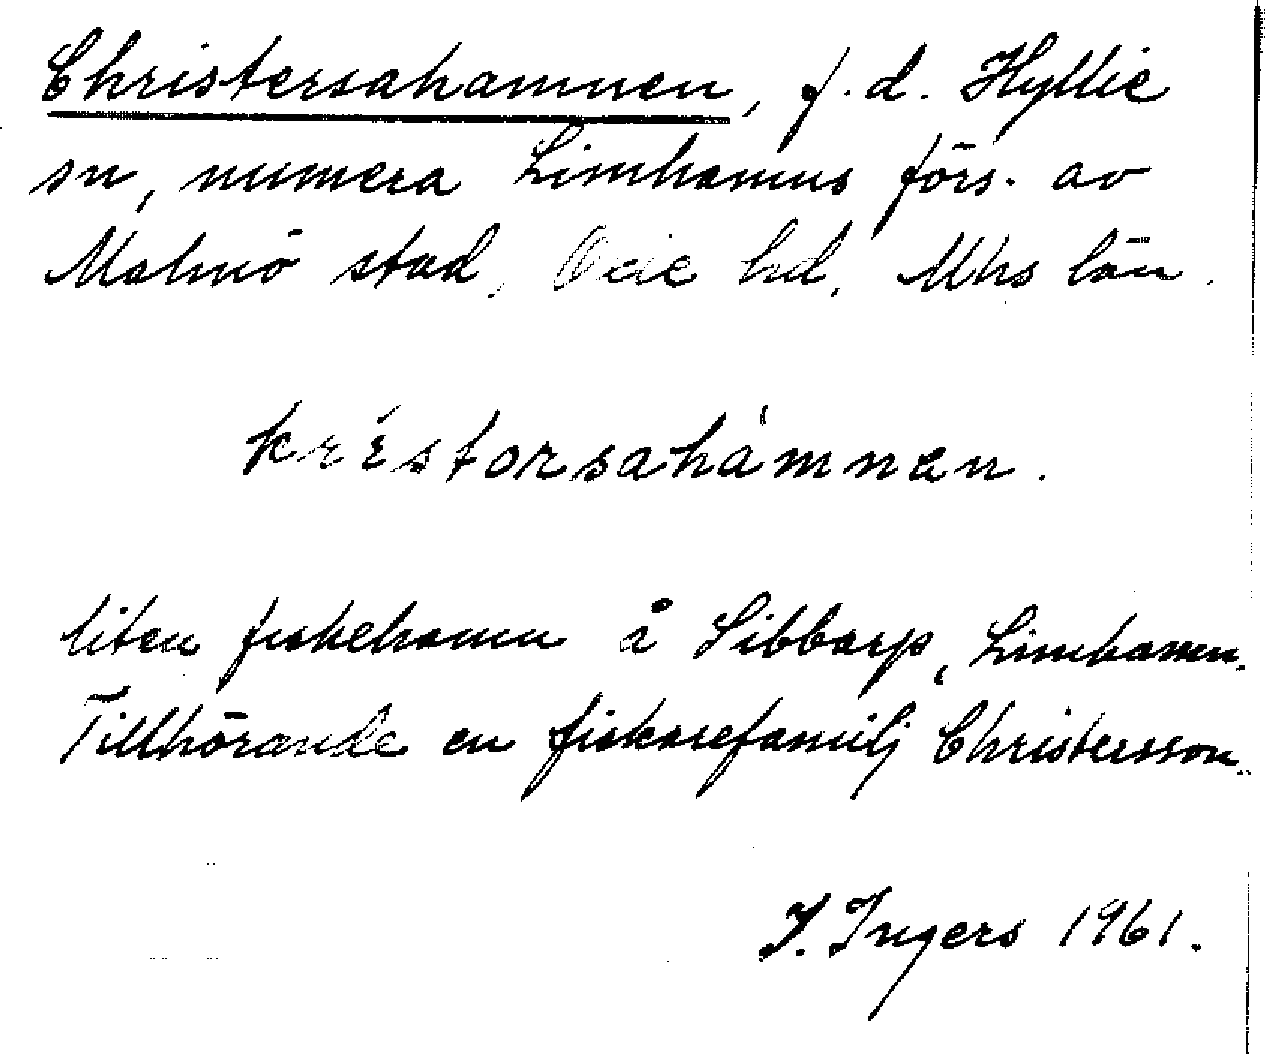 Christersahamnen, f.d. Hyllie
sn, numera Limhamns förs. av
Malmö stad, Oxie hd, Mhs län.
kréstorsahámnen.
liten fiskehamn å Sibbarp, Limhamn.
Tillhörande en fiskarefamilj Christersson.
I. Ingers 1961.